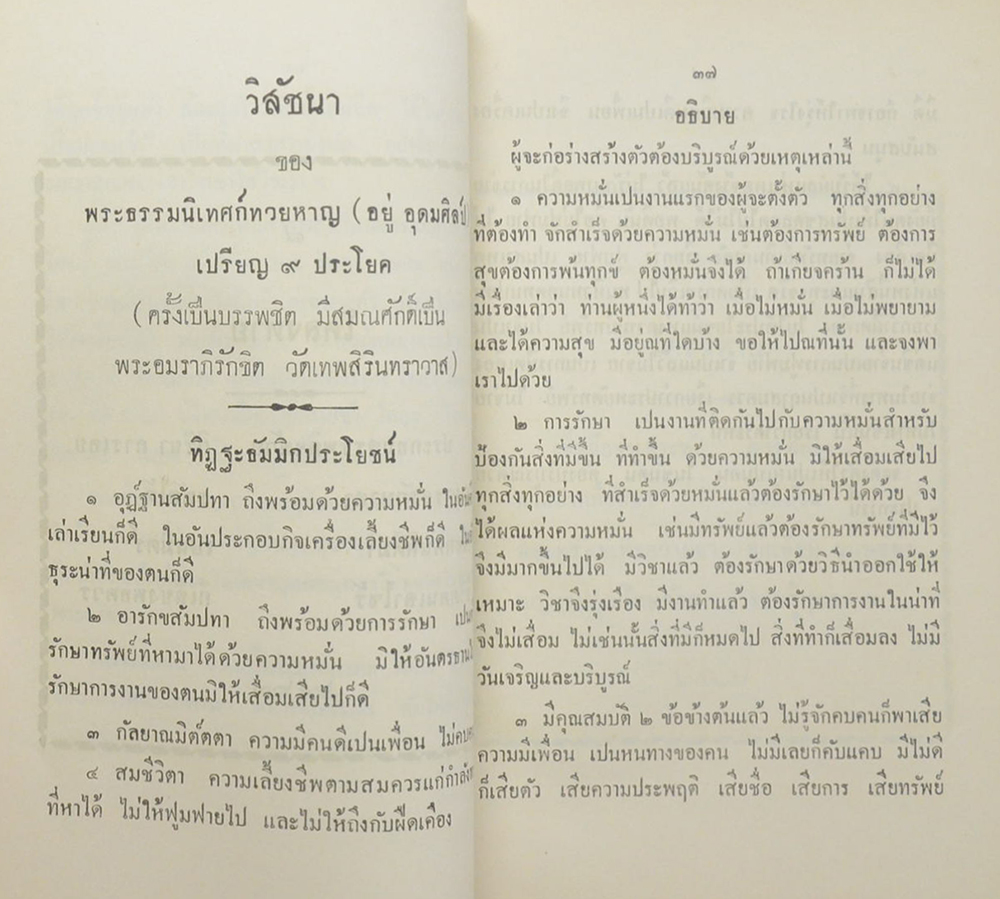 วิสัชนา
ของ
พระธรรมนิเทศก์ทวยหาญ (อยู่ อุดมศิลป์
เปรียญ ๙ ประโยค
(ครั้งเป็นบรรพชิต มีสมณศักดิ์เป็น
พระอมราภิรักขิต วัดเทพสิรินทราวาส)
ทิฏฐะธัมมิกประโยชน์
๑ อุฏ์ฐานสัมปทา ถึงพร้อมด้วยความหมั่น
เล่าเรียนก็ดี ในอันประกอบกิจเครื่องเลี้ยงชีพก็ดี
ธุระน่าที่ของตนก็ดี
๒ อารักขสัมปทา ถึงพร้อมด้วยการรักษา
รักษาทรัพย์ที่หามาได้ด้วยความหมั่น มิให้อันตรธาน
รักษาการงานของตนมิให้เสื่อมเสียไปก็ดี
๓ กัลยาณมิต์ตตา ความมีคนดีเปนเพื่อน
๔ สมชีวิตา ความเลี้ยงชีพตามสมควรแก่กำลัง
ที่หาได้ ไม่ให้ฟูมฟายไป และไม่ให้ถึงกับฝืดเคือง
๓๗
อธิบาย
ผู้จะก่อร่างสร้างตัวต้องบริบูรณ์ด้วยเหตุเหล่านี้
๑ ความหมั่นเป็นงานแรกของผู้จะตั้งตัว ทุกสิ่งทุกอย่าง
ที่ต้องทำ จักสำเร็จด้วยความหมั่น เช่นต้องการทรัพย์ ต้องการ
สุขต้องการพ้นทุกข์ ต้องหมั่นจึงได้ ถ้าเกียจคร้าน ก็ไม่ได้
มีเรื่องเล่าว่า ท่านผู้หนึ่งได้ท้าว่า เมื่อไม่หมั่น เมื่อไม่พยายาม
และได้ความสุข มีอยู่ณที่ใดบ้าง ขอให้ไปณที่นั้น และจงพา
เราไปด้วย
๒ การรักษา เปนงานที่ติดกันไปกับความหมั่นสำหรับ
ป้องกันสิ่งที่มีขึ้น ที่ทำขึ้น ด้วยความหมั่น มิให้เสื่อมเสียไป
ทุกสิ่งทุกอย่าง ที่สำเร็จด้วยหมั่นแล้วต้องรักษาไว้ได้ด้วย จึง
ได้ผลแห่งความหมั่น เช่นมีทรัพย์แล้วต้องรักษาทรัพย์ที่มีไว้
จึงมีมากขึ้นไปได้ มีวิชาแล้ว ต้องรักษาด้วยวิธีนำออกใช้ให้
เหมาะ วิชาจึงรุ่งเรือง มีงานทำแล้ว ต้องรักษาการงานในน่าที่
จึงไม่เสื่อม ไม่เช่นนั้นสิ่งที่มีก็หมดไป สิ่งที่ทำก็เสื่อมลง ไม่มี
วันเจริญและบริบูรณ์
๓ มีคุณสมบัติ ๒ ข้อข้างต้นแล้ว ไม่รู้จักคบคนก็พาเสีย
ความมีเพื่อน เปนหนทางของคน ไม่มีเลยก็คับแคบ มีไม่ดี
ก็เสียตัว เสียความประพฤติ เสียชื่อ เสียการ เสียทรัพย์